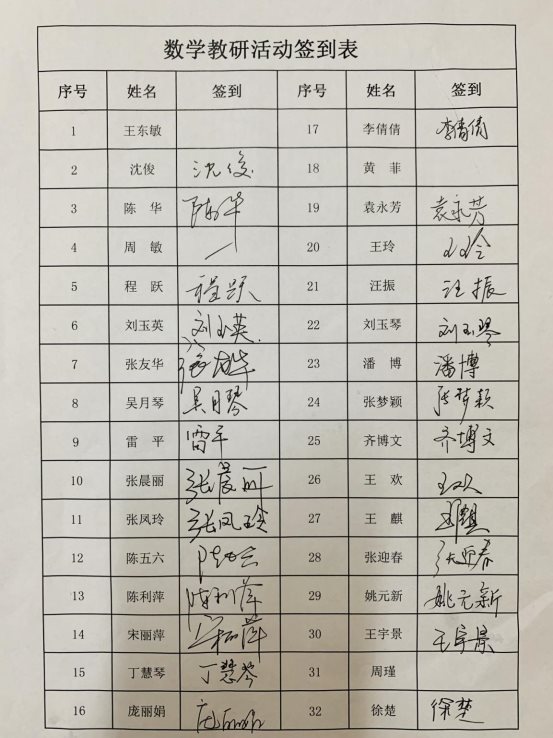 数学教研活动签到表
序号 姓名 签到 序号 姓名 签到
1 王东敏 17 李倩倩 李倩倩
2 沈俊 沈俊 18 黄菲
3 陈华 陈华 19 袁永芳 袁永芳
4 周敏 20 王玲 王玲
5 程跃 程跃 21 汪振 汪振
6 刘玉英 刘玉英 22 刘玉琴 刘玉琴
7 张友华 张友华 23 潘博 潘博
8 吴月琴 吴月琴 24 张梦颖 张梦颖
9 雷平 雷平 25 齐博文 齐博文
10 张晨丽 张晨丽 26 王欢 王欢
11 张凤玲 张凤玲 27 王麒 王麒
12 陈五六 陈五六 28 张迎春 张迎春
13 陈利萍 陈利萍 29 姚元新 姚元新
14 宋丽萍 宋丽萍 30 王宇景 王宇景
15 丁慧琴 丁慧琴 31 周瑾
16 庞丽娟 庞丽娟 32 徐楚 徐楚